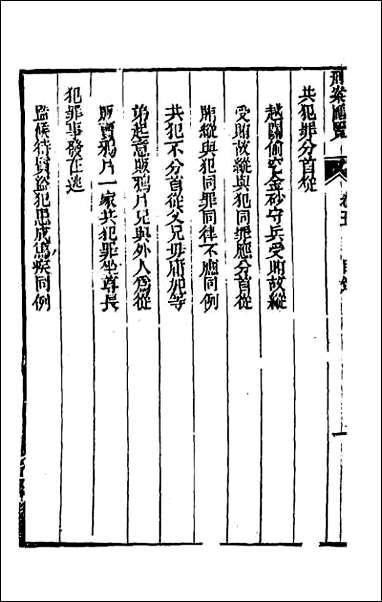 刑案匯覽 卷五 目錄
共犯罪分首從
越關偷空金砂守兵受賄故縱
受賄故縱與犯同罪應分首從
賄縱與犯同罪同律不應同例
共犯不分首從父兄毋庸加等
弟起意販鴉片兄與外人為從
販賣鴉片一家共犯罪坐尊長
犯罪事發在逃
監候待質盜犯患成篤疾同例